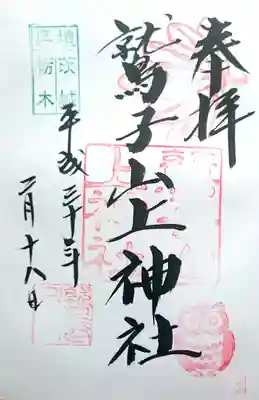 奉拝
鷲子山上神社
平成三十年
二月十八日
境茨城
県栃木